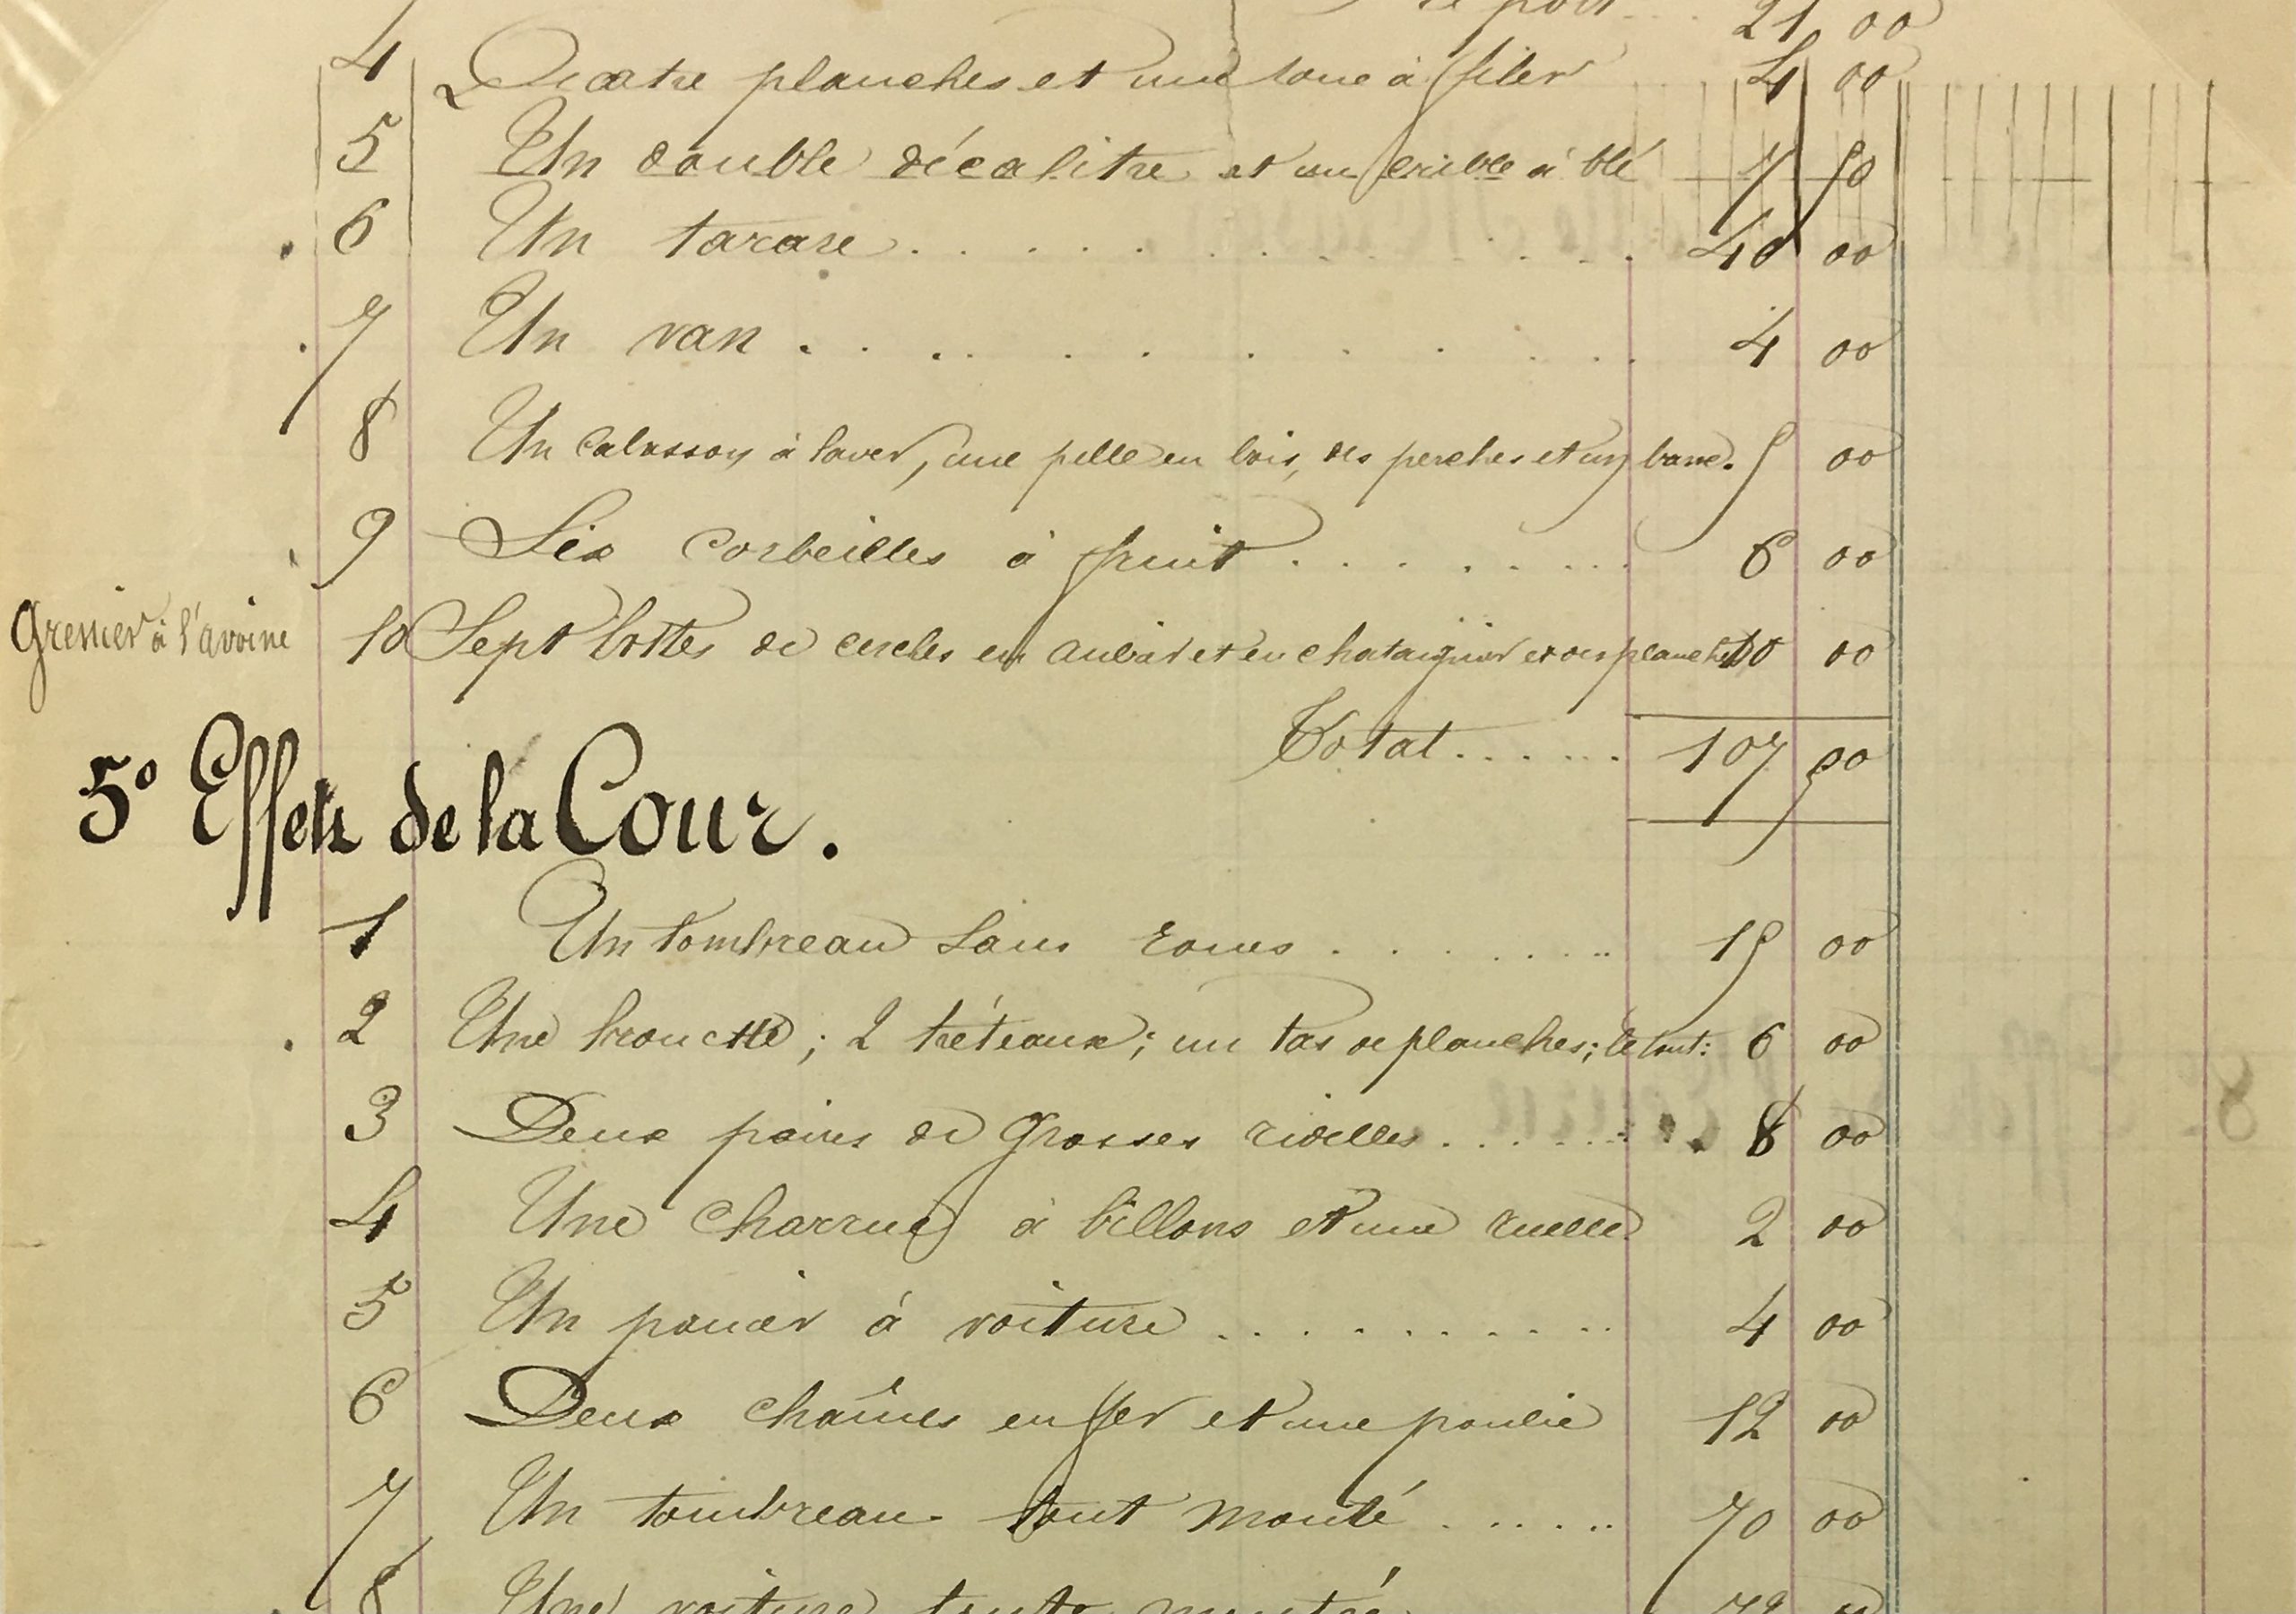 Report... 21 00
4 Quatre planches et une roue à filer 4 00
5 Un double décalitre et un crible à blé 7 50
6 Un tarare . . . . . . . . . . 40 00
7 Un van . . . . . . . . . . 4 00
8 Un à laver, une pelle en bois, des perches et un banc. 5 00
9 Six corbeilles à fruit . . . . . . . . 6 00
Grenier à l'avoine 10 Sept bottes de cercles en aubier et en chataignier et des planches 10 00
Total . . . . . . 107 50
5° Effets de la Cour.
1 Un tombreau sans roues . . . . . . . . 15 00
2 Une brouette ; 2 tréteaux ; un tas de planches ; le tout : 6 00
3 Deux paires de grosses ridelles . . . . . . . 8 00
4 Une charrue à billons et une ruelle 2 00
5 Un panier à voiture . . . . . . . . . . 4 00
6 Deux chaînes en fer et une poulie 12 00
7 Un tombreau tout monté . . . . . . 70 00
8 Une voiture toute montée